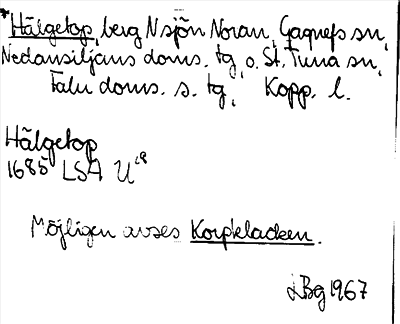 *Hälgetop, berg N sjön Noran, Gagnefs sn,
Nedansiljans doms. tg, o. St. Tuna sn,
Falu doms. s. tg, Kopp. l.
Hälgetop
1685 LSA U
Möjligen avses Korpkladeen.
LBg 1967